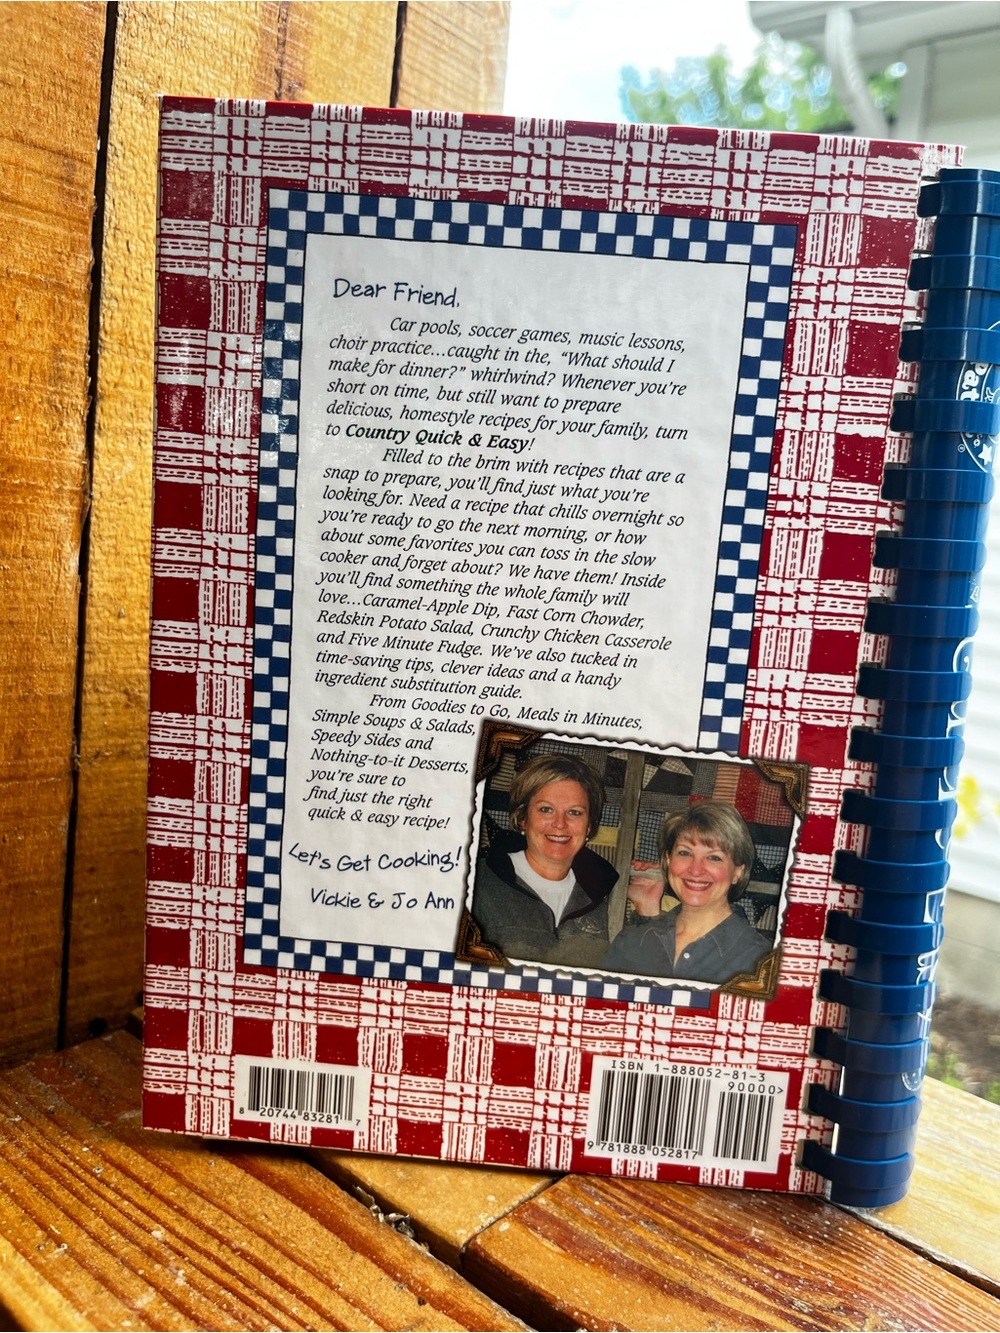 Dear Friend,
Car pools, soccer games, music lessons,
choir practice...caught in the, “What should I
make for dinner?” whirlwind? Whenever you're
short on time, but still want to prepare
delicious, homestyle recipes for your family, turn
to Country Quick & Easy!
Filled to the brim with recipes that are a
snap to prepare, you'll find just what you're
looking for. Need a recipe that chills overnight so
you're ready to go the next morning, or how
about some favorites you can toss in the slow
cooker and forget about? We have them! Inside
you'll find something the whole family will
love...Caramel-Apple Dip, Fast Corn Chowder,
Redskin Potato Salad, Crunchy Chicken Casserole
and Five Minute Fudge. We've also tucked in
time-saving tips, clever ideas and a handy
ingredient substitution guide.
From Goodies to Go, Meals in Minutes,
Simple Soups & Salads,
Speedy Sides and
Nothing-to-it Desserts,
you're sure to
find just the right
quick & easy recipe!
Let's Get Cooking!
Vickie & Jo Ann
8 20744 83281 7
ISBN 1-888052-81-3
90000>
9 781888 052817